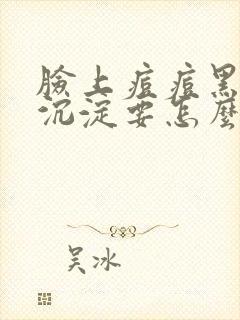 臉上痘痘黑
沉淀要怎麼
吴冰